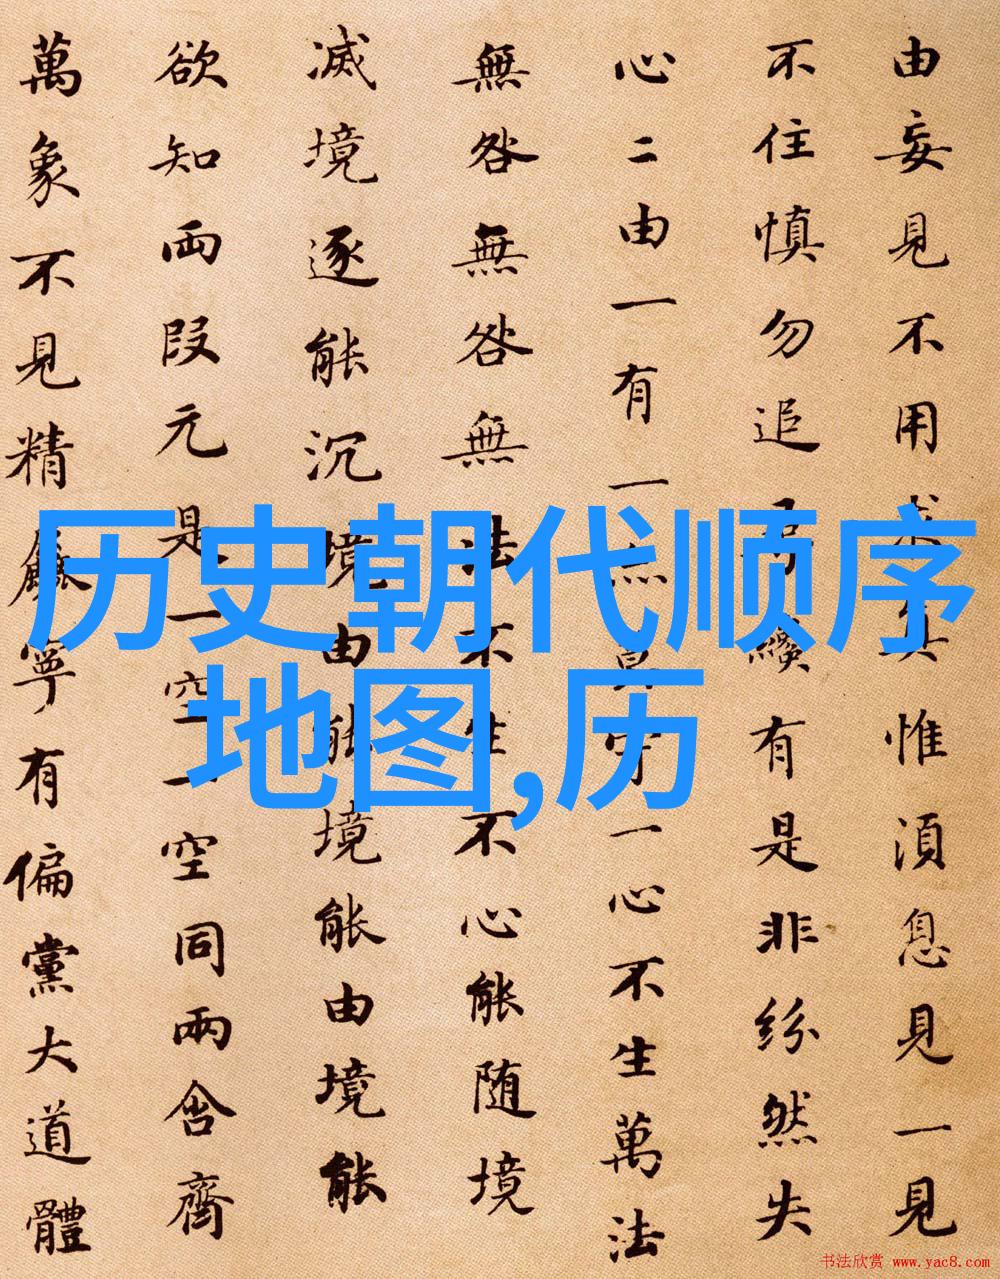 由妄見不用求真惟湏息見一見
不住慎勿追尋纔有是非紛然失
心二由一有一亦莫守一心不生萬法
無咎無咎無法不生不心能随境
滅境逐能沉境由能境能由境能
欲知兩段元是一空一空同兩含齊
萬象不見精麤寧有偏黨大道體
历史朝代顺序
地图,历
书法欣赏 www.yac8.com